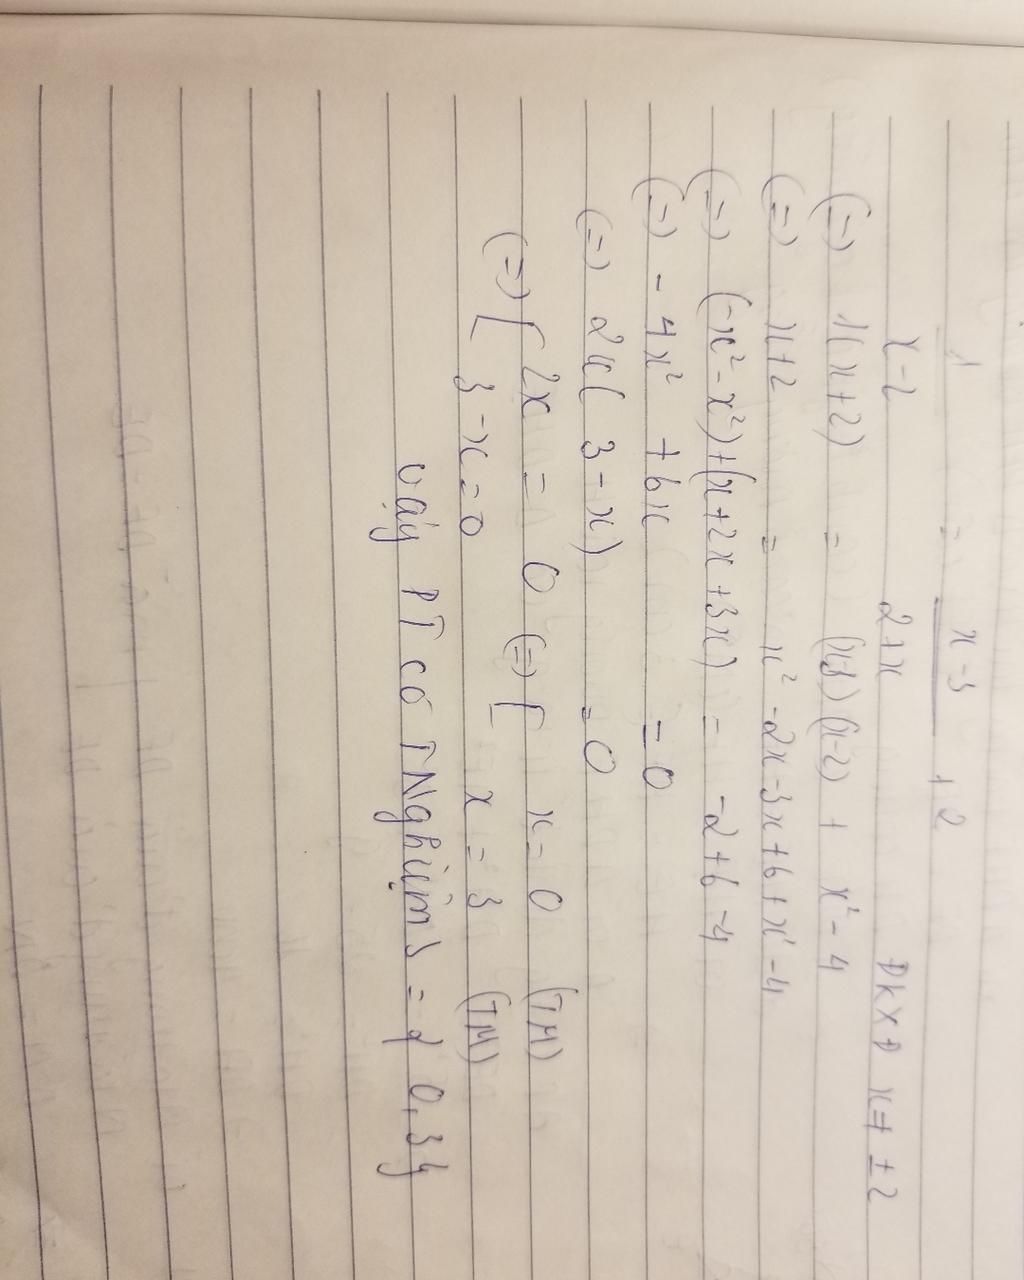 1 = x-3 + 2
x-2 2+x ĐKXĐ x≠ ±2
(=) 1(x+2) = (x-3)(x-2) + x²-4
(=) x+2 = x²-2x-3x+6+x²-4
(=) (-x²-x²)+(x+2x+3x) = -2+6-4
(=) -4x² +6x = 0
(=) 2x(3-x) = 0
(=) [ 2x = 0 (=) [ x=0 (TM)
3-x=0 x=3 (TM)
vậy PT có TNghiệm S = { 0,3}